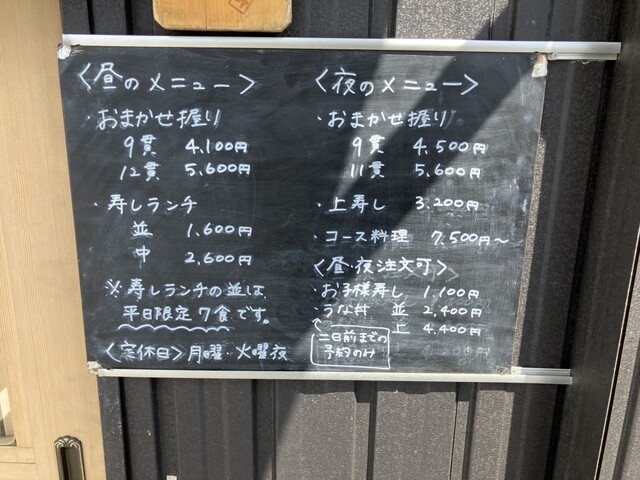 〈昼のメニュー〉
・おまかせ握り
9貫 4,100円
12貫 5,600円
・寿しランチ
並 1,600円
中 2,600円
※寿しランチの並は
平日限定7食です。
〈定休日〉月曜・火曜夜
〈夜のメニュー〉
・おまかせ握り
9貫 4,500円
11貫 5,600円
・上寿し 3,200円
・コース料理 7,500円～
〈昼・夜注文可〉
・お子様寿し 1,100円
・うな丼 並 2,400円
上 4,400円
二日前までの
予約のみ